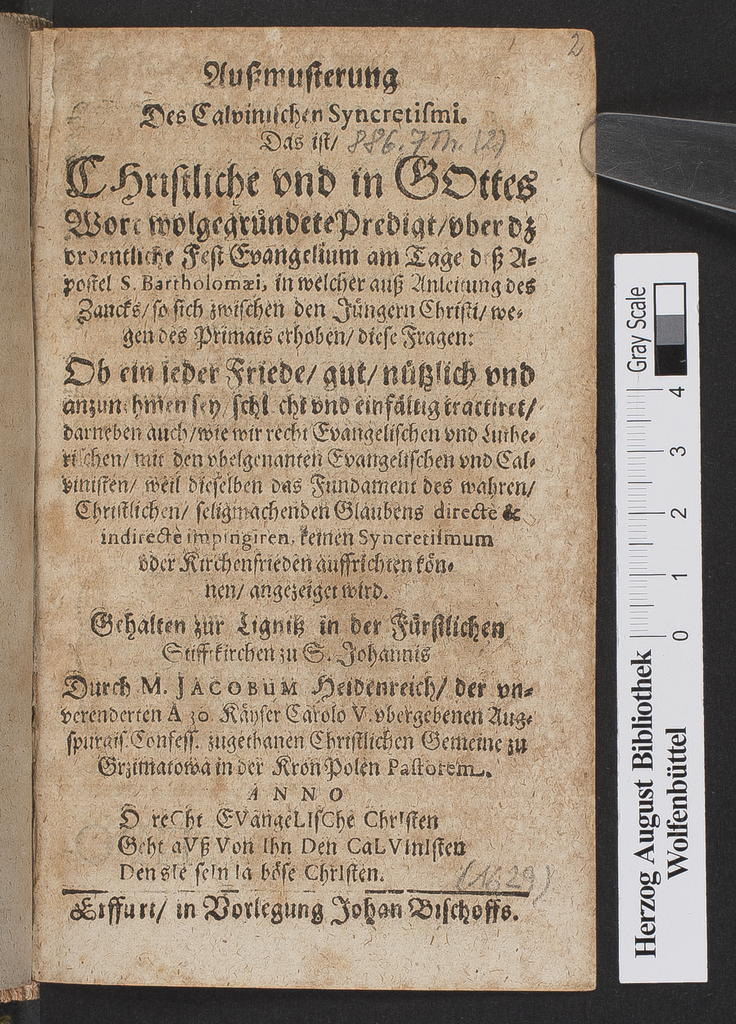 2
Außmusterung
Des Calvinischen Syncretismi.
Das ist/ 886. 7 Th. (2)
CHristliche vnd in GOttes
Wort wolgegründete Predigt/ vber dz
ordentliche Fest Evangelium am Tage deß A-
postel S. Bartholomæi, in welcher auß Anleitung des
Zancks/ so sich zwischen den Jüngern Christi/ we-
gen des Primats erhoben/ diese Fragen:
Ob ein jeder Friede/ gut/ nützlich vnd
anzunehmen sey/ schlecht vnd einfältig tractiret/
darneben auch/ wie wir recht Evangelischen vnd Luthe-
rischen/ mit den vbelgenanten Evangelischen vnd Cal-
vinisten/ weil dieselben das Fundament des wahren/
Christlichen/ seligmachenden Glaubens directè &
indirectè impingiren, keinen Syncretismum
oder Kirchenfrieden auffrichten kön-
nen/ angezeiget wird.
Gehalten zur Lignitz in der Fürstlichen
Stifftkirchen zu S. Johannis
Durch M. JACOBUM Heidenreich/ der vn-
verenderten A 30 Käyser Carolo V. vbergebenen Aug-
spurgis. Confess. zugethanen Christlichen Gemeine zu
Grzimatowa in der Kron Polen Pastorem.
ANNO
O reCht EVangeLIsChe ChrIsten
Geht aVß Von Ihn Den CaLVInIsten
Den sIe seIn Ia böse ChrIsten.
(1629)
Erffurt/ in Vorlegung Johan Bischoffs.
Herzog August Bibliothek
Wolfenbüttel
0 1 2 3 4
Gray Scale